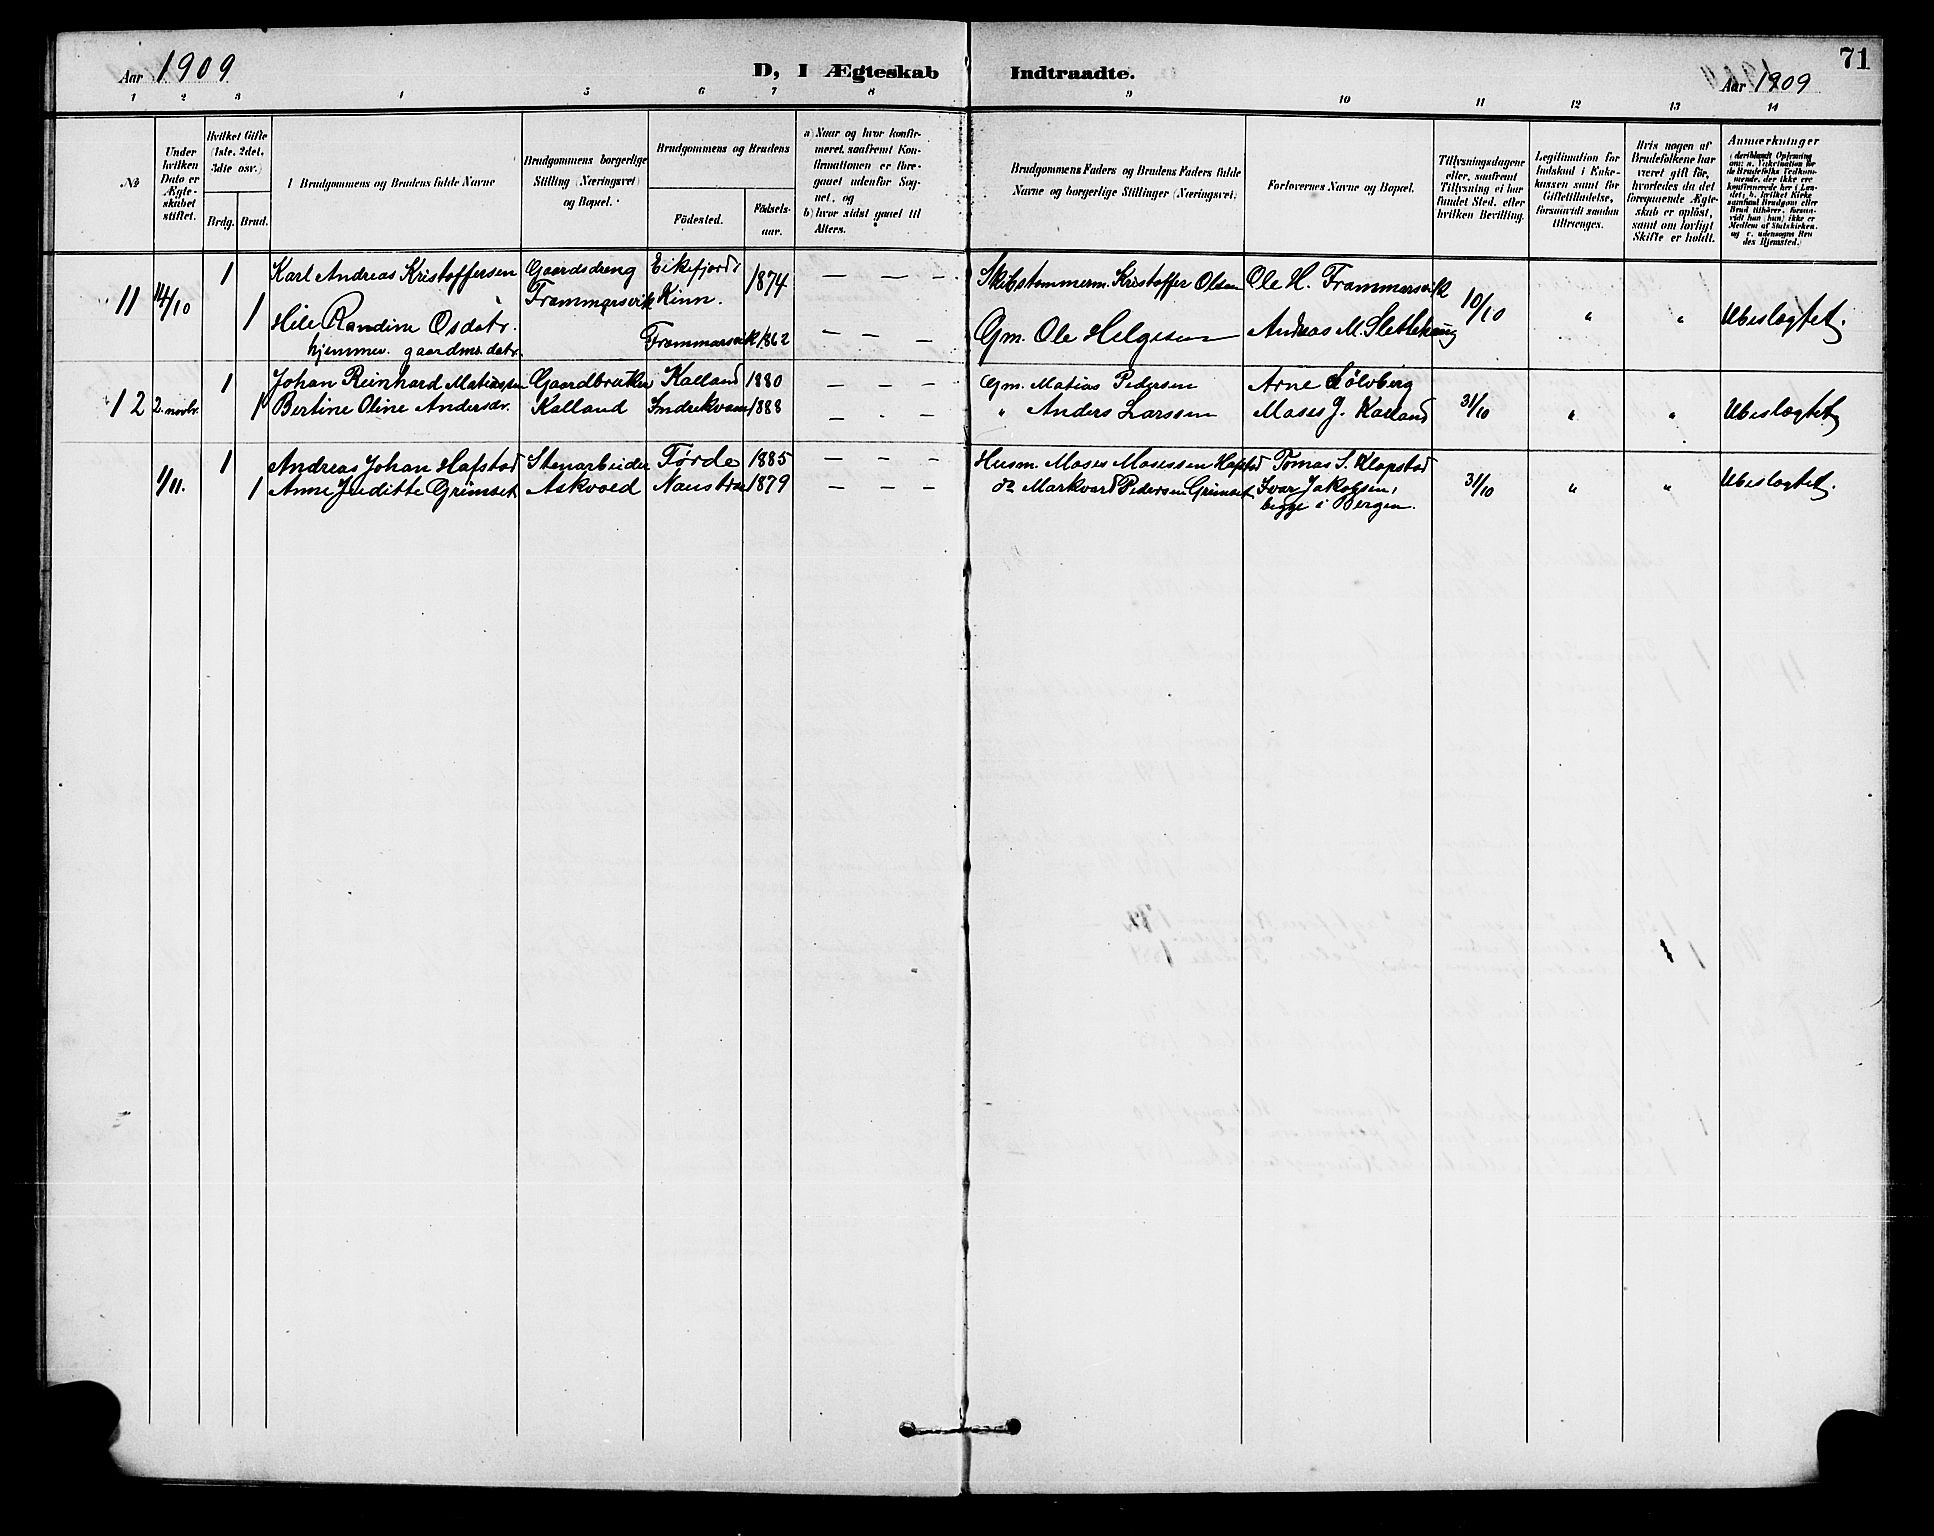 71
Aar 1909
D, I Ægteskab Indtraadte.
Aar 1909
1 2 3 4 5 6 7 8 9 10 11 12 13 14
№
Under hvilken Dato er Ægteskabet stiftet.
Hvilket Gifte (1ste, 2det, 3dte osv.)
Brdg. Brud.
Brudgommens og Brudens fulde Navne
Brudgommens borgerlige Stilling (Næringsvei) og Bopæl.
Brudgommens og Brudens
Födested.
Födsels-aar.
a) Naar og hvor konfirmeret, saafremt Konfirmationen er foregaaet udenfor Sognet, og
b) hvor sidst gaaet til Alters.
Brudgommens Faders og Brudens Faders fulde Navne og borgerlige Stillinger (Næringsvei).
Forlovernes Navne og Bopæl.
Tillysningsdagene eller, saafremt Tillysning ei har fundet Sted, efter hvilken Bevilling.
Legitimation for Indskud i Enkekassen samt for Giftetilladelse, forsaavidt saadan tiltrænges.
Hvis nogen af Brudefolkene har været gift før, hvorledes da det foregaaende Ægteskab er opløst, samt om lovligt Skifte er holdt.
Anmærkninger
11 14/10 1 Karl Andreas Kristoffersen Gaardsdreng Eikefjord 1874 — — — Skibstømmerm. Kristoffer Olsen Ole H. Frammarsvik 10/10 " " Ubeslægtet.
Frammarsvik Kinn.
1 Randine Osdatr. Frammarsvik 1862 — — — Gm. Ole Helgesen Andreas M.
hjemmev. gaardmdsdatr.
12 2. novbr. 1 Johan Reinhard Matiassen Gaardbruker Kalland 1880 — — — Gm. Matias Pedersen Arne Sölvberg 31/10 " " Ubeslægtet
1 Bertine Oline Andersdr. Kalland Indrekvam 1888 — . — " Anders Larssen Moses J. Kalland
1/11. 1 Andreas Johan Hafstad Stenarbeider Førde 1885 — — — Husm. Moses Mosessen Hafstad Tomas S. Klopstad 31/10 " " Ubeslægtet.
1 Anne Juditte Grimset Askvoll Naustdal 1879 — — — do Markvard Pedersen Grimset Ivar Jakobsen,
begge i Bergen.